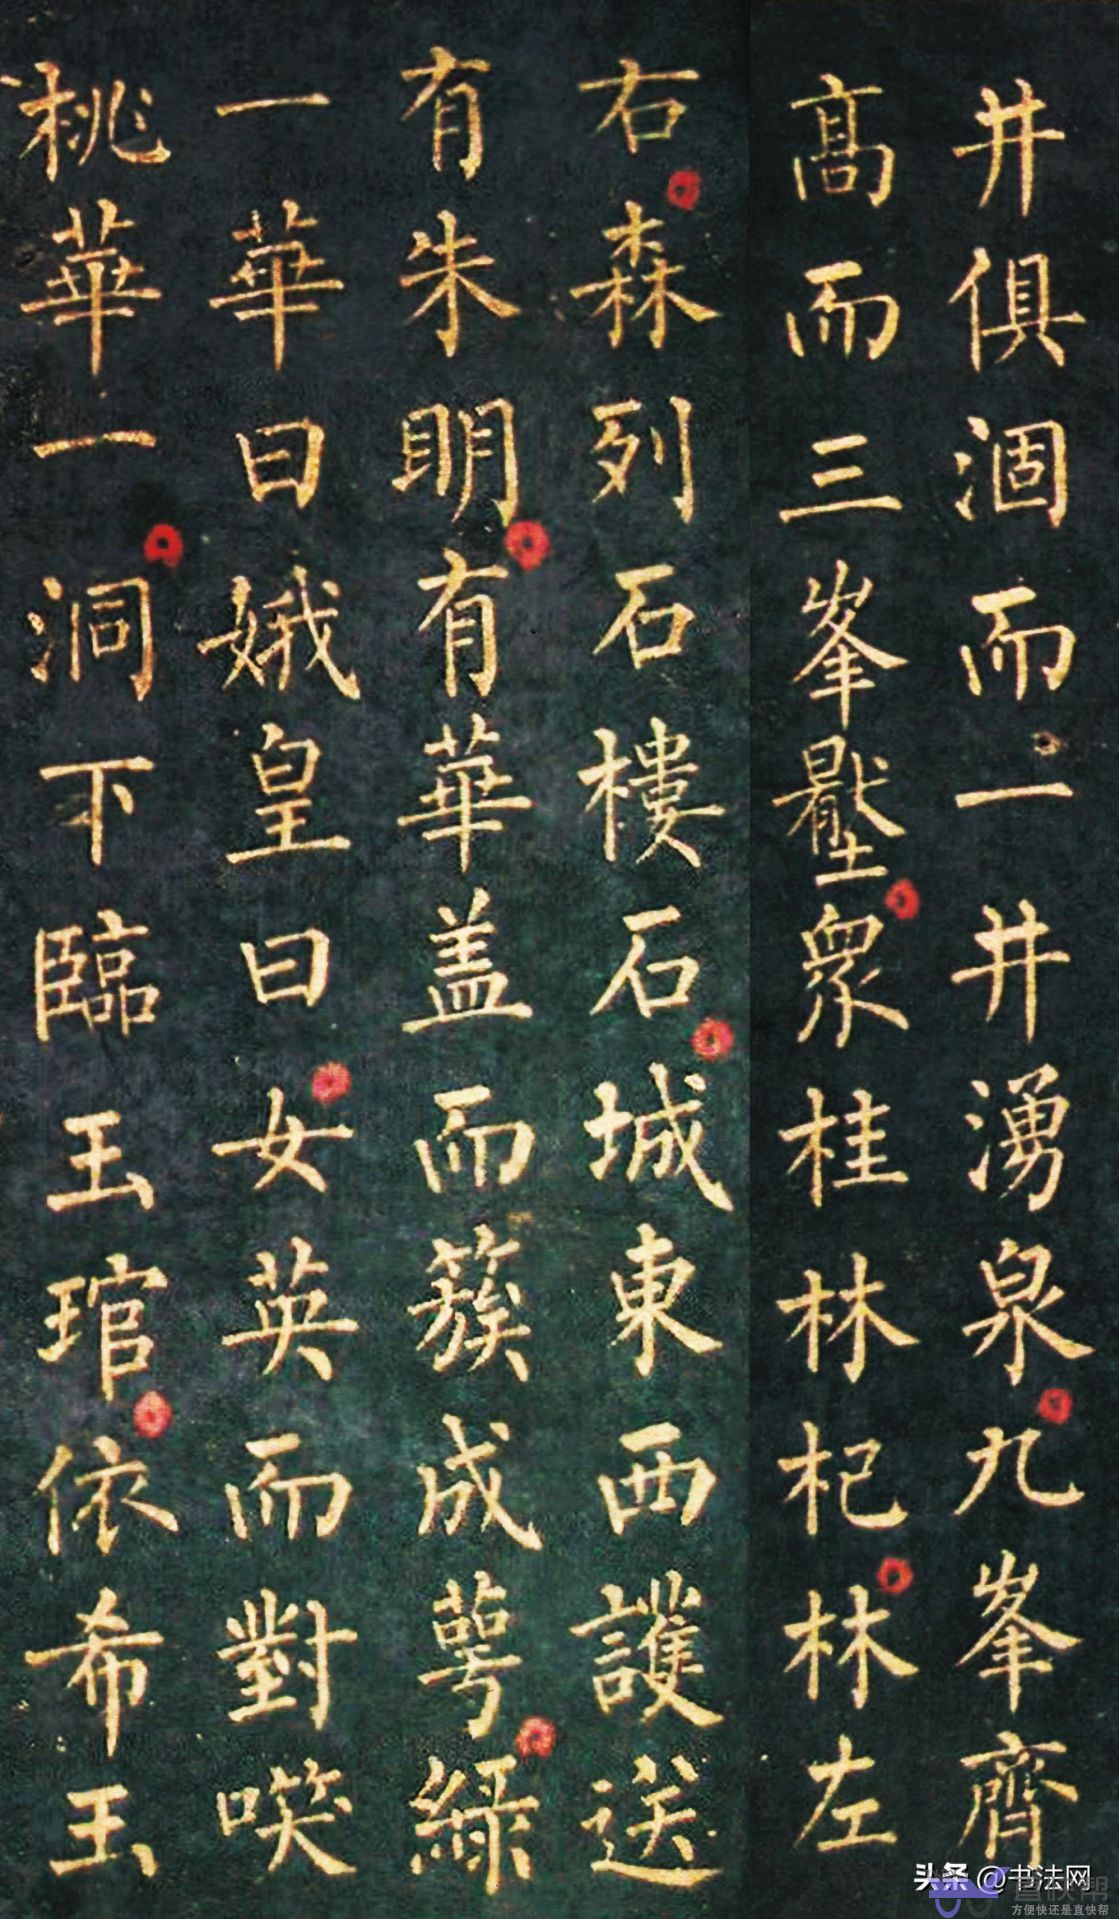 井俱涸而一井湧泉九峯齊
髙而三峯衆桂林杞林左
右森列石樓石城東西護送
有朱明有華盖而簇成萼緑
一華曰娥皇曰女英而對㗛
桃華一洞下臨玉琯依希玉
头条 @书法网
直快帮
方便快还是直快帮